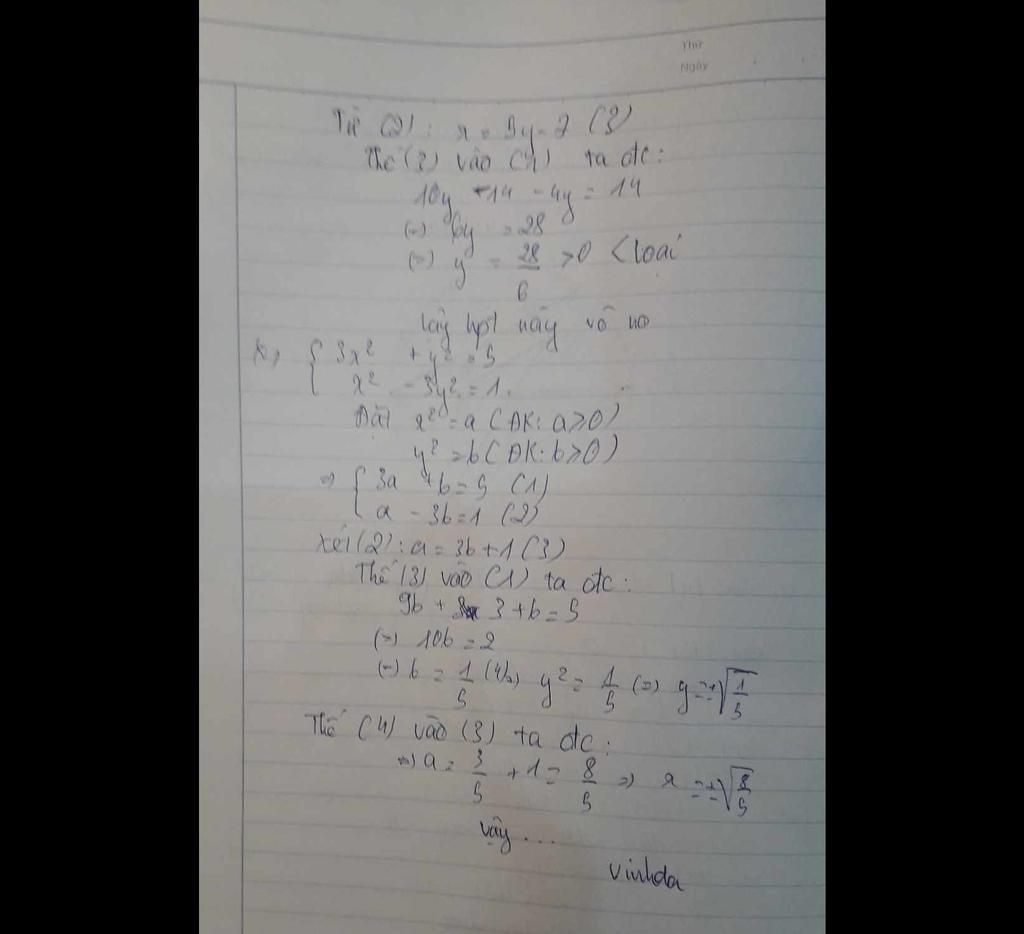 Thứ
Ngày
Từ (2): x = 5y - 7 (3)
Thế (3) vào (1) ta đc:
10y - 14 - 4y = 14
(=) 6y = 28
(=) y = 28/6 > 0 <loại
Vậy hpt này vô no
{ 3x² + y² = 5
x² - 3y² = 1.
Đặt x² = a (ĐK: a ≥ 0)
y² = b (ĐK: b ≥ 0)
=> { 3a + b = 5 (1)
a - 3b = 1 (2)
Xét (2): a = 3b + 1 (3)
Thế (3) vào (1) ta đc:
9b + 3 + b = 5
(=) 10b = 2
(=) b = 1/5 (4) => y² = 1/5 (=) y = ±√(1/5)
Thế (4) vào (3) ta đc:
=> a = 3/5 + 1 = 8/5 => x = ±√(8/5)
Vậy ...
Vinhda